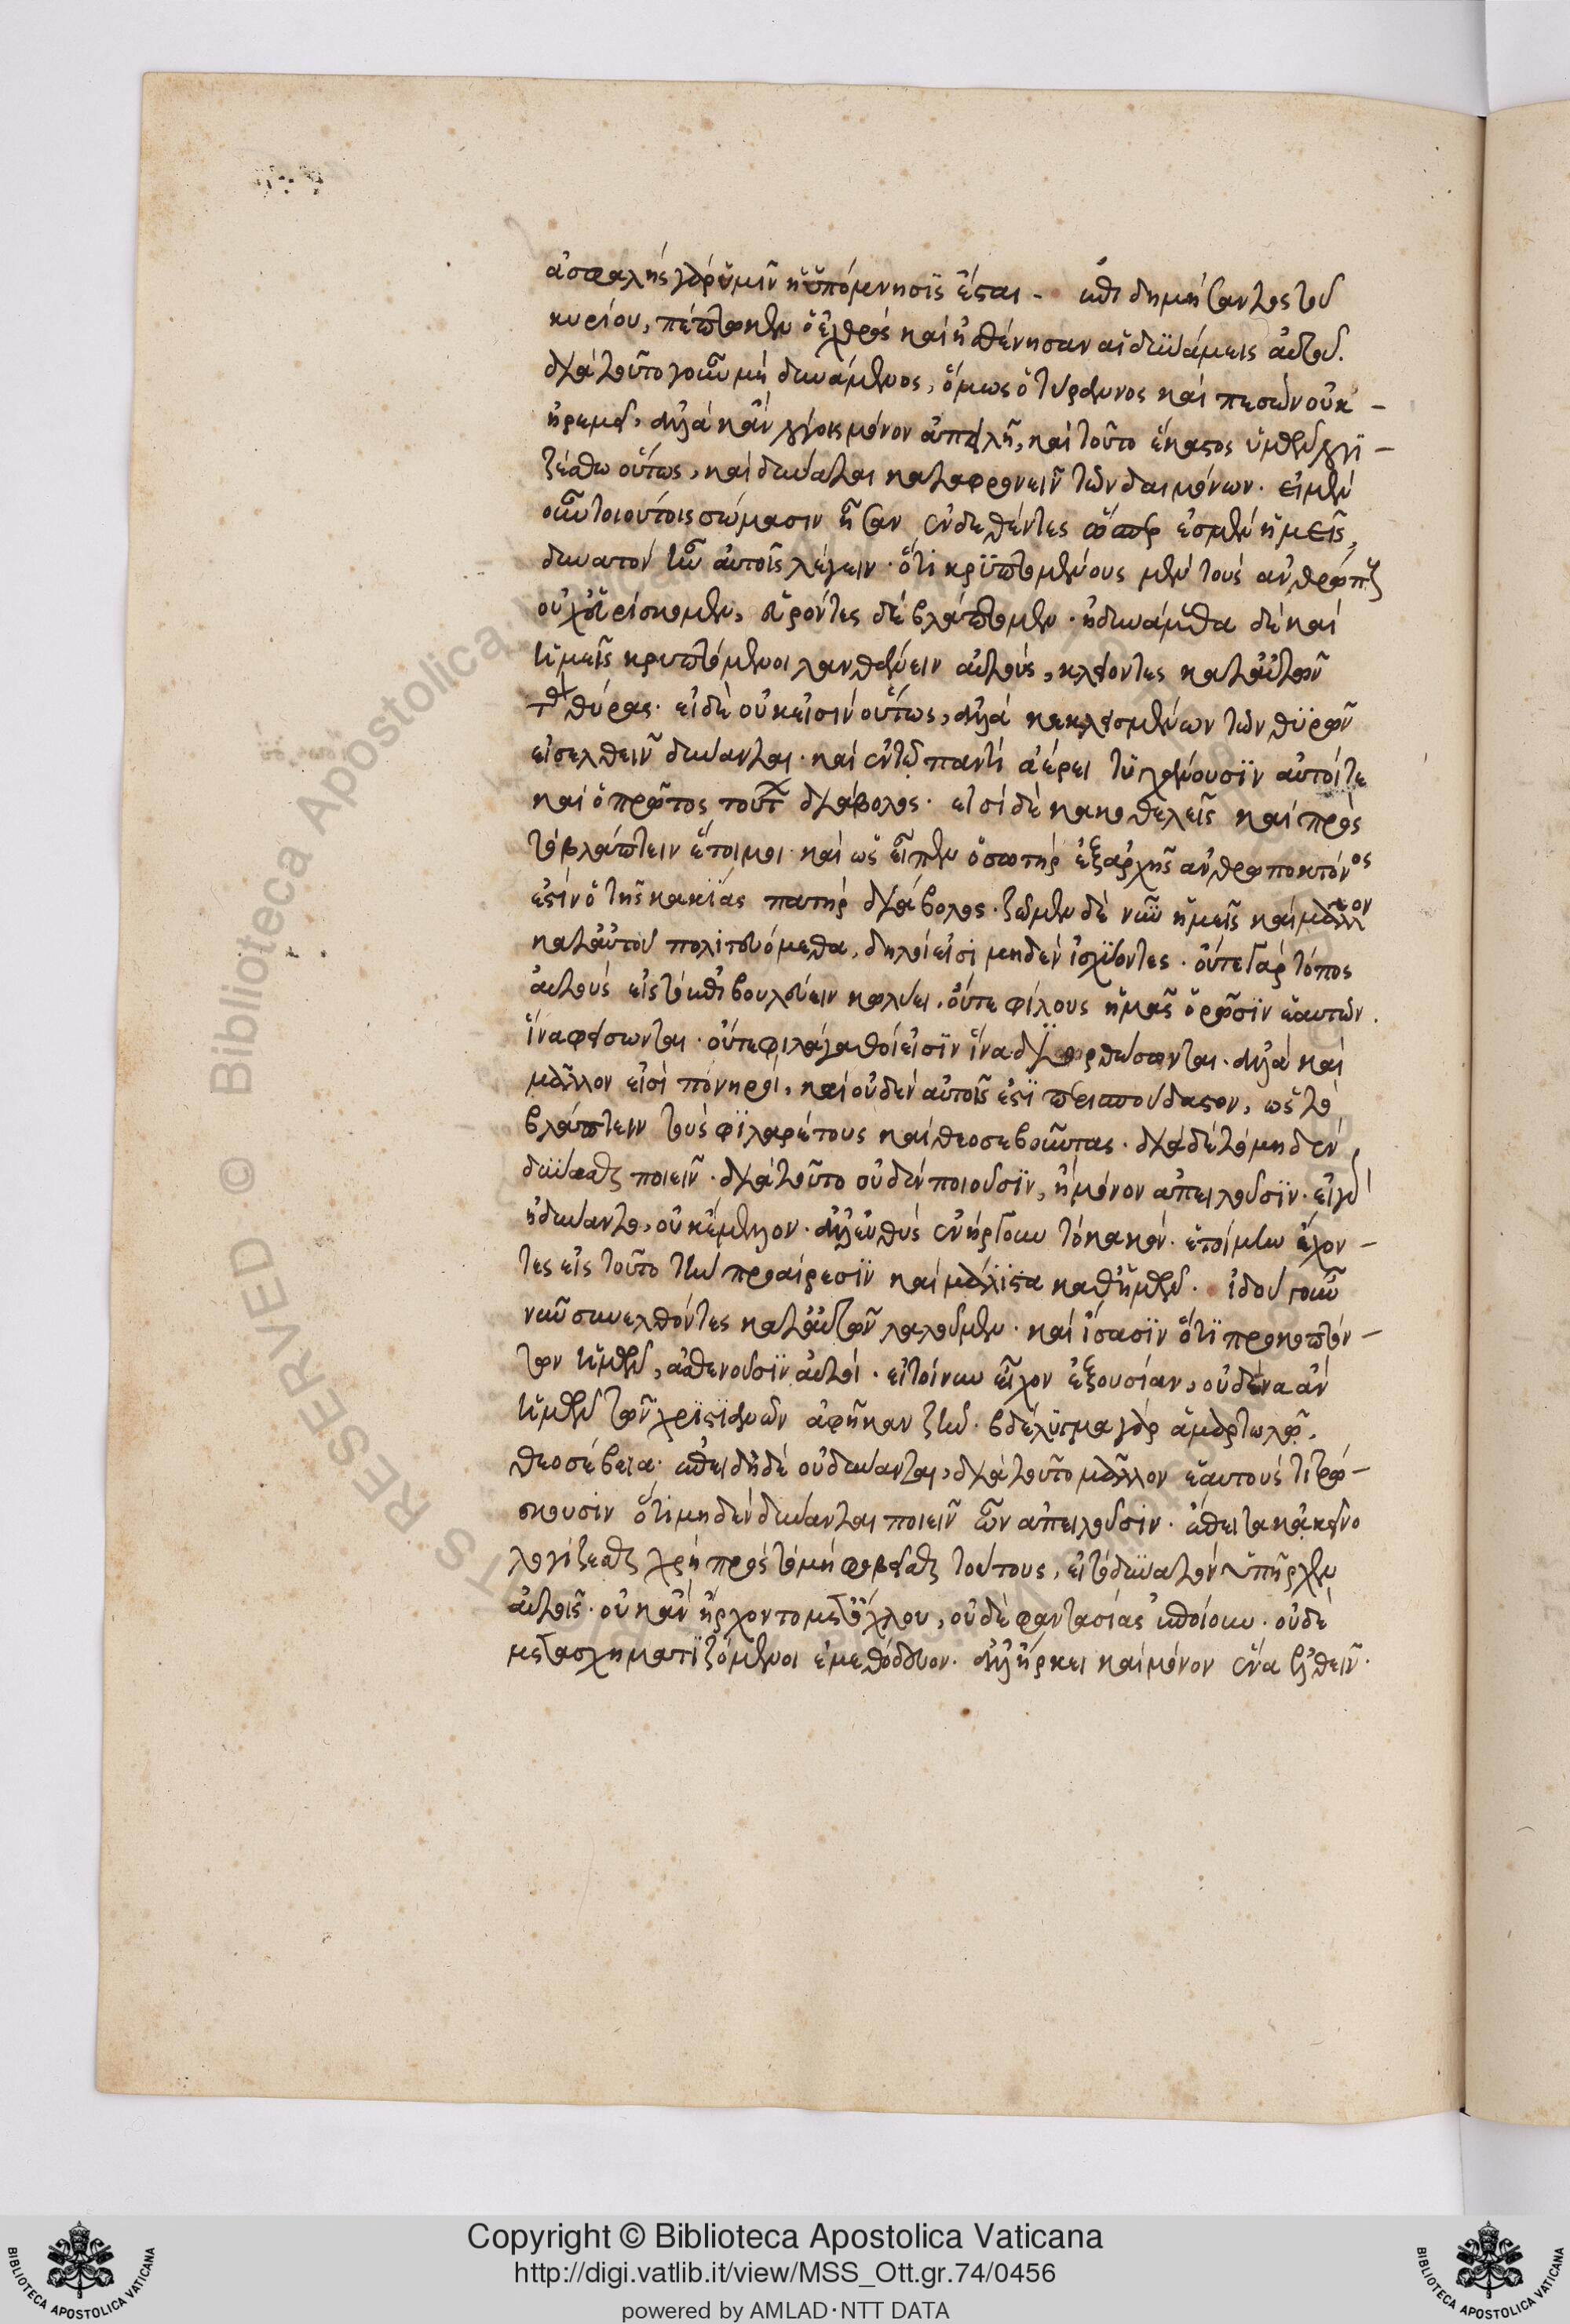 ἀσφαλὴς γὰρ ὑμῖν ἡ ὑπόμνησις ἔσται – ἐπιδημήσαντος τοῦ
κυρίου, πέπτωκεν ὁ ἐχθρὸς καὶ ἠσθένησαν αἱ δυνάμεις αὐτοῦ.
διὰ τοῦτο γοῦν μὴ δυνάμενος, ὅμως ὁ τύραννος καὶ πεσὼν οὐκ –
ἠρεμεῖ, ἀλλὰ κἂν λόγοις μόνον ἀπειλῇ, καὶ τοῦτο ἕκαστος ὑμῶν λογι –
ζέσθω οὕτως, καὶ δύναται καταφρονεῖν τῶν δαιμόνων. εἰ μὲν
οὖν τοιούτοις σώμασιν ἦσαν ἐνδεθέντες ὥσπερ ἐσμὲν ἡμεῖς,
δυνατὸν ἦν αὐτοῖς λέγειν· ὅτι κρυπτομένους μὲν τοὺς ἀνθρώπους
οὐχ εὑρίσκομεν, εὑρόντες δὲ βλάπτομεν· ἠδυνάμεθα δὲ καὶ
ἡμεῖς κρυπτόμενοι λανθάνειν αὐτούς, κλείοντες κατ' αὐτῶν
τὰς θύρας· εἰ δὲ οὐκ εἰσὶν οὕτως, ἀλλὰ κεκλεισμένων τῶν θυρῶν
εἰσελθεῖν δύνανται· καὶ ἐν τῷ παντὶ ἀέρει τυγχάνουσιν αὐτοί τε
καὶ ὁ πρῶτος τούτων διάβολος· εἰσὶ δὲ κακοθελεῖς καὶ πρὸς
τὸ βλάπτειν ἕτοιμοι· καὶ ὡς εἶπεν ὁ σωτὴρ ἐξ ἀρχῆς ἀνθρωποκτόνος
ἐστὶν ὁ τῆς κακίας πατὴρ διάβολος· ζῶμεν δὲ νῦν ἡμεῖς καὶ μᾶλλον
κατ' αὐτοῦ πολιτευόμεθα, δῆλοί εἰσι μηδὲν ἰσχύοντες· οὔτε γὰρ τόπος
αὐτοὺς εἰς τὸ ἐπιβουλεύειν κωλύει, οὔτε φίλους ἡμᾶς ὁρῶσιν ἑαυτῶν.
ἵνα φείσωνται· οὔτε φιλάγαθοί εἰσιν ἵνα διορθώσωνται· ἀλλὰ καὶ
μᾶλλον εἰσὶ πονηροί, καὶ οὐδὲν αὐτοῖς ἐστι περισπούδαστον, ὡς τὸ
βλάπτειν τοὺς φιλαρέτους καὶ θεοσεβοῦντας· διὰ δὲ τὸ μηδὲν
δύνασθαι ποιεῖν· διὰ τοῦτο οὐδὲν ποιοῦσιν, ἢ μόνον ἀπειλοῦσιν· εἰ γὰρ
ἠδύναντο, οὐκ ἔμελλον· ἀλλ' εὐθὺς ἐνήργουν τὸ κακόν· ἑτοίμην ἔχον –
τες εἰς τοῦτο τὴν προαίρεσιν καὶ μάλιστα καθ' ἡμῶν· ἰδοὺ γοῦν
νῦν συνελθόντες κατ' αὐτῶν λαλοῦμεν· καὶ ἴσασιν ὅτι προκοπτόν –
των ἡμῶν, ἀσθενοῦσιν αὐτοί· εἰ τοίνυν εἶχον ἐξουσίαν, οὐδένα ἂν
ἡμῶν τῶν χριστιανῶν ἀφῆκαν ζῆν· βδέλυγμα γὰρ ἁμαρτωλῷ.
θεοσέβεια· ἐπειδὴ δὲ οὐ δύνανται, διὰ τοῦτο μᾶλλον ἑαυτοὺς τιτρώ –
σκουσιν ὅτι μηδὲν δύνανται ποιεῖν ὧν ἀπειλοῦσιν· ἔπειτα κἀκεῖνο
λογίζεσθαι χρὴ πρὸς τὸ μὴ φοβεῖσθαι τούτους, εἰ τὸ δυνατὸν ὑπῆρχεν
αὐτοῖς· οὐκ ἂν ἤρχοντο μετ' ὄχλου, οὐδὲ φαντασίας ἐποίουν· οὐδὲ
μετασχηματιζόμενοι ἐμεθόδευον· ἀλλ' ἤρκει καὶ μόνον ἕνα ἐλθεῖν·
Copyright © Biblioteca Apostolica Vaticana
http://digi.vatlib.it/view/MSS_Ott.gr.74/0456
powered by AMLAD·NTT DATA